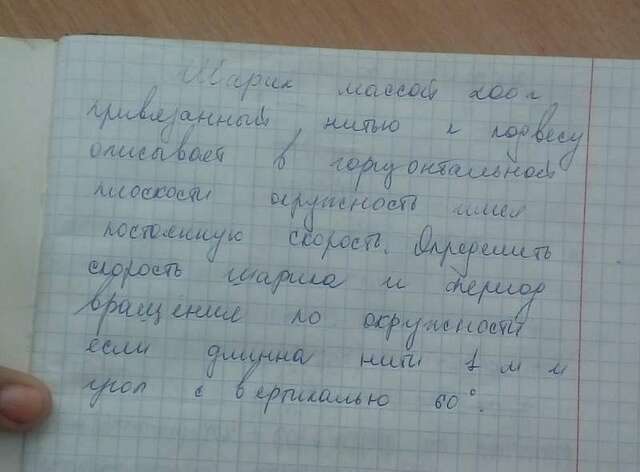 Шарик массой 200 г
привязанный нитью к подвесу
описывает в горизонтальной
плоскости окружность имея
постоянную скорость. Определить
скорость шарика и период
вращения по окружности
если длинна нити 1 м и
угол с вертикалью 60°.